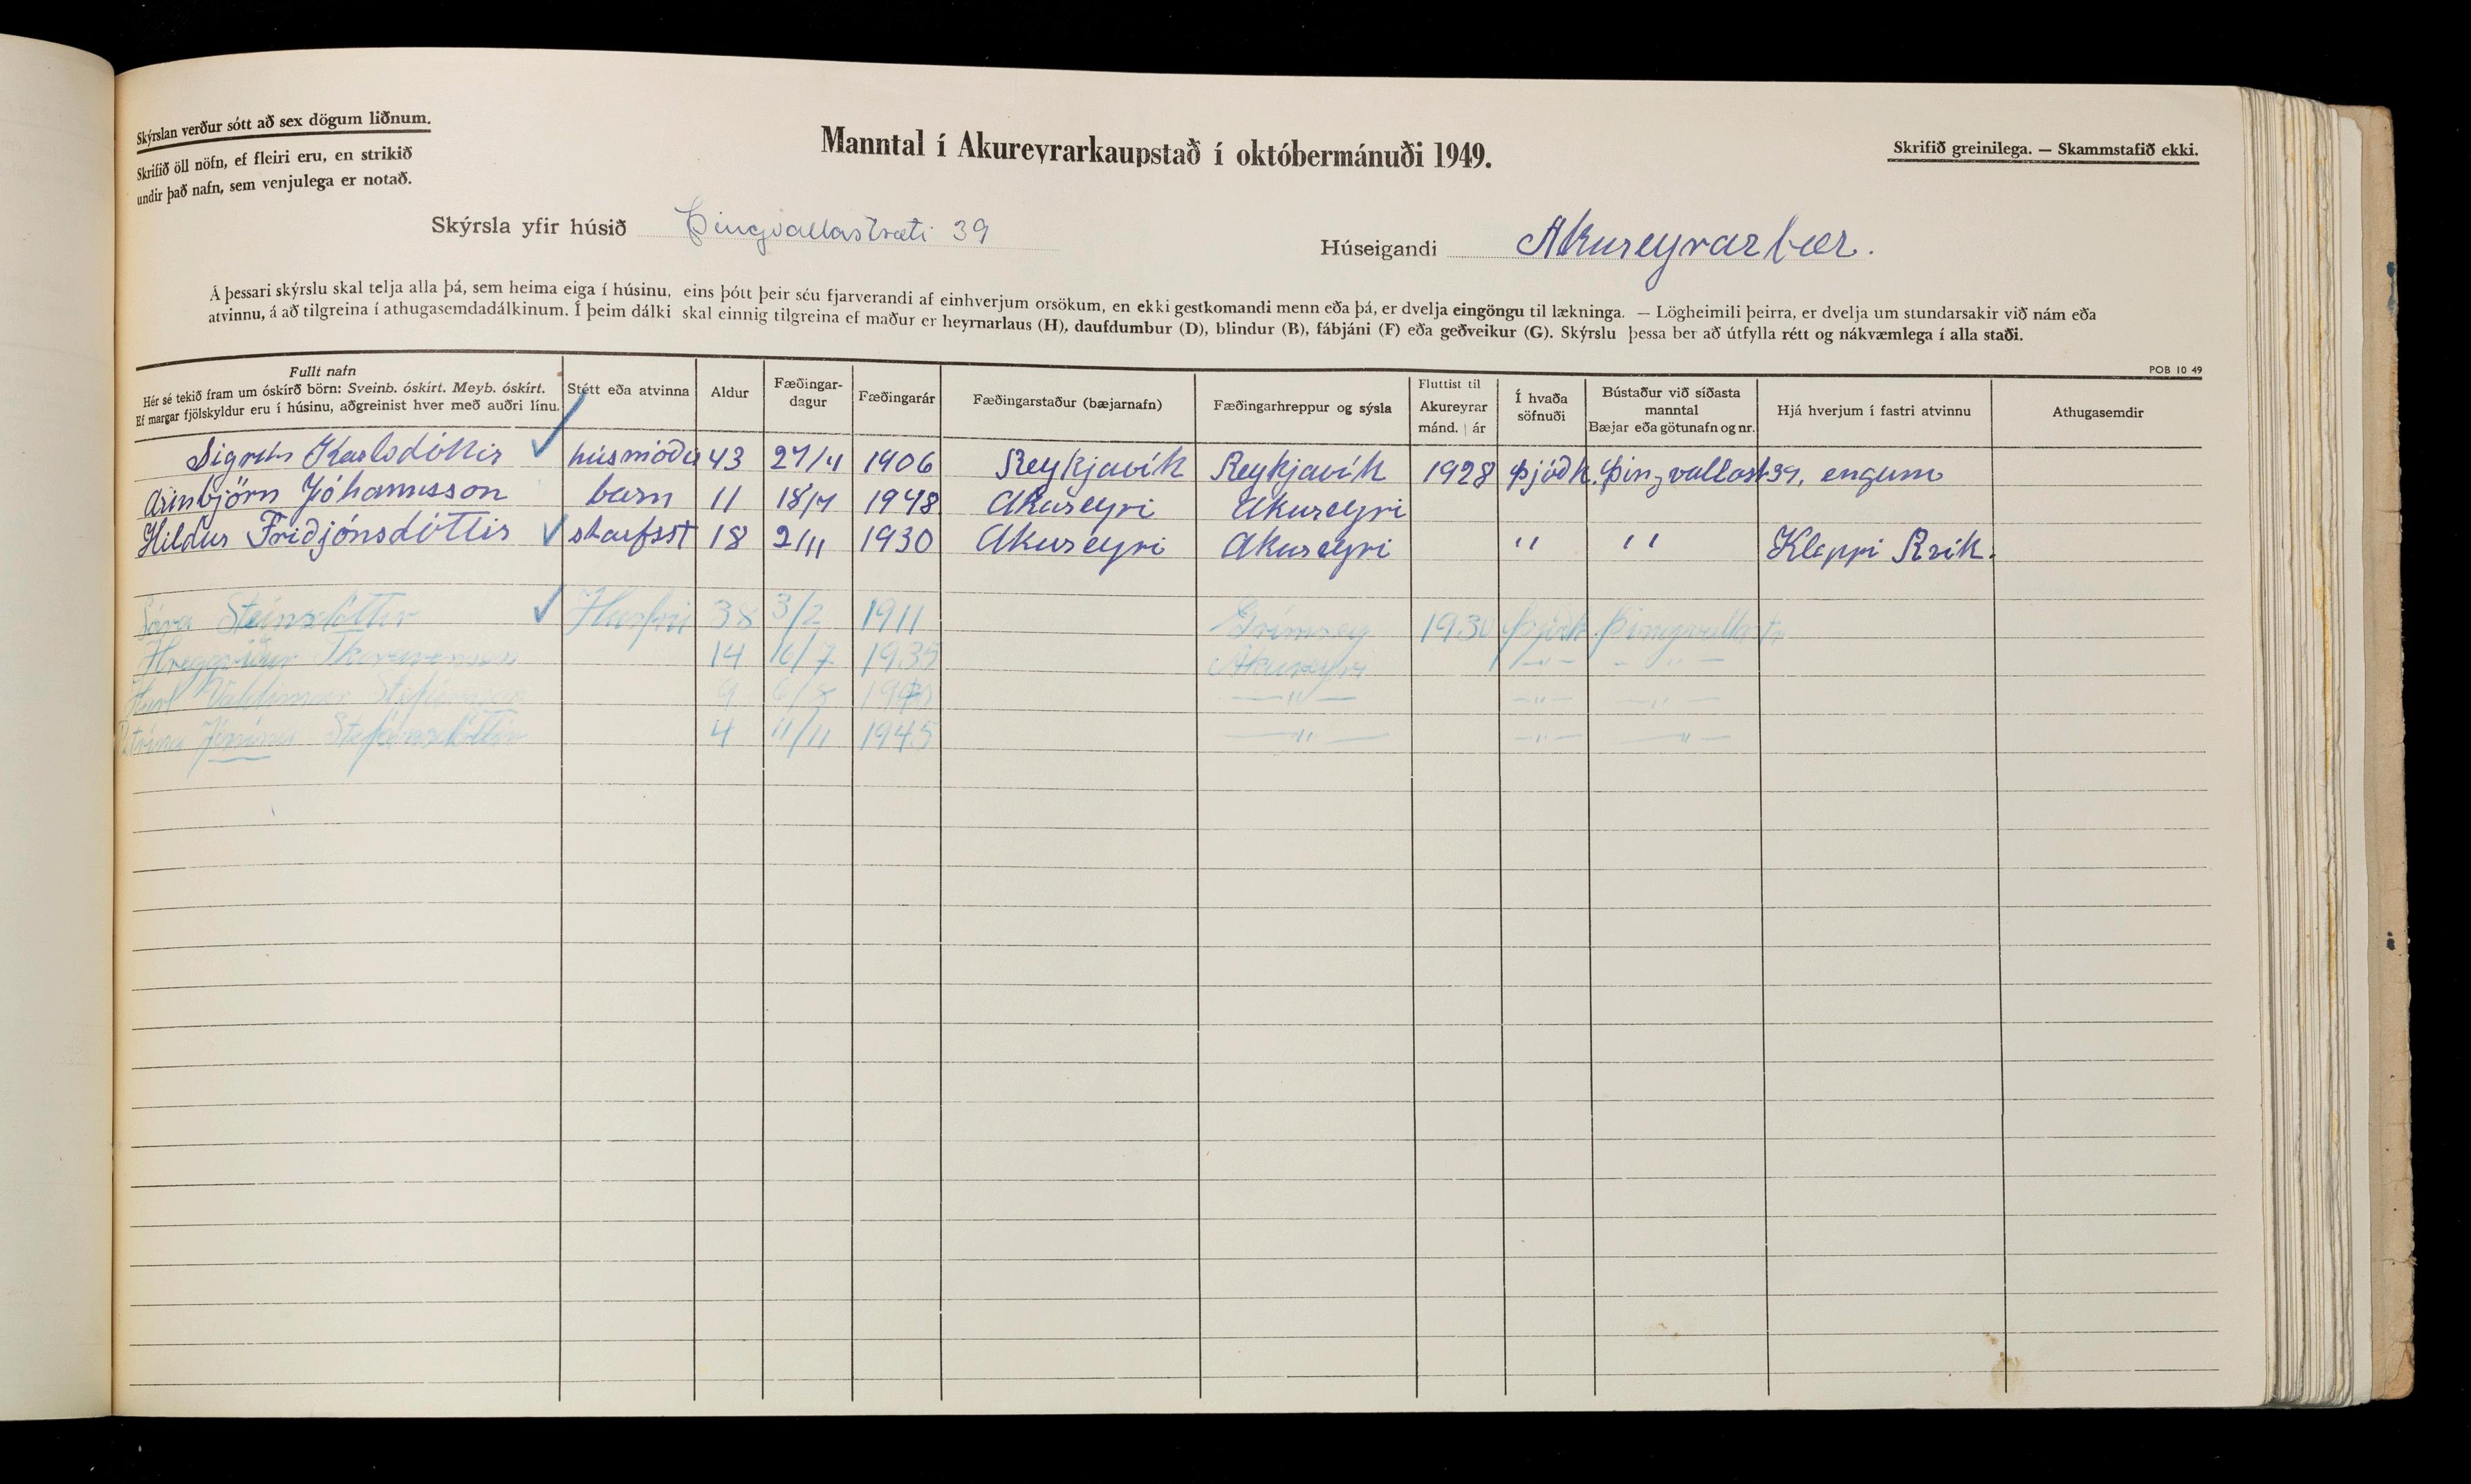 Skýrslan verður sótt að sex dögum liðnum.
Skrifið öll nöfn, ef fleiri eru, en strikið
undir það nafn, sem venjulega er notað.
Manntal í Akureyrarkaupstað í októbermánuði 1949.
Skrifið greinilega. — Skammstafið ekki.
Skýrsla yfir húsið Þingvallastræti 39
Húseigandi Akureyrarbær.
Á þessari skýrslu skal telja alla þá, sem heima eiga í húsinu, eins þótt þeir séu fjarverandi af einhverjum orsökum, en ekki gestkomandi menn eða þá, er dvelja eingöngu til lækninga. — Lögheimili þeirra, er dvelja um stundarsakir við nám eða
atvinnu, á að tilgreina í athugasemdadálkinum. Í þeim dálki skal einnig tilgreina ef maður er heyrnarlaus (H), daufdumbur (D), blindur (B), fábjáni (F) eða geðveikur (G). Skýrslu þessa ber að útfylla rétt og nákvæmlega í alla staði.
POB 10 49
Fullt nafn
Hér sé tekið fram um óskírð börn: Sveinb. óskírt. Meyb. óskírt.
Ef margar fjölskyldur eru í húsinu, aðgreinist hver með auðri línu.
Stétt eða atvinna
Aldur
Fæðingar-
dagur
Fæðingarár
Fæðingarstaður (bæjarnafn)
Fæðingarhreppur og sýsla
Fluttist til
Akureyrar
mánd. | ár
Í hvaða
söfnuði
Bústaður við síðasta
manntal
Bæjar eða götunafn og nr.
Hjá hverjum í fastri atvinnu
Athugasemdir
Karlsdóttir húsmóðir 43 27/4 1906 Reykjavík Reykjavík 1928 Þjóðk. Þingvallast 39, engum
Arinbjörn Jóhannsson barn 11 18/7 1948 Akureyri Akureyri
Hildur Friðjónsdóttir starfsst 18 2/11 1930 Akureyri Akureyri " " Kleppi Rvík.
Steinsdóttir Húsfrú 38 3/2 1911 Grímsey 1930 Þjóðk. Þingvallastr
14 16/7 1935 Akureyri —"— — " —
Karl Valdimar Stefánsson 9 6/8 —"— —"— —"—
Jónína Stefánsdóttir 4 11/11 1945 —"— —"— —"—